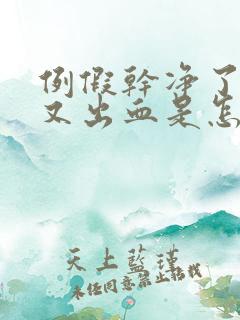 例假幹净了
又出血是怎
天上藍瑾
未经同意禁止转载